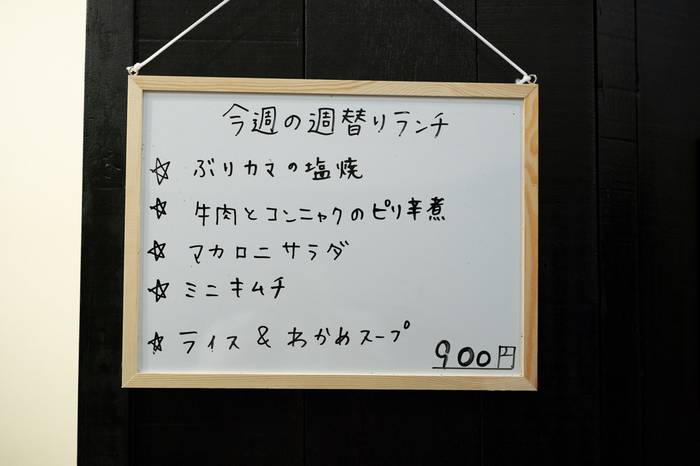 今週の週替りランチ
☆ ぶりカマの塩焼
☆ 牛肉とコンニャクのピリ辛煮
☆ マカロニサラダ
☆ ミニキムチ
☆ ライス & わかめスープ
900円